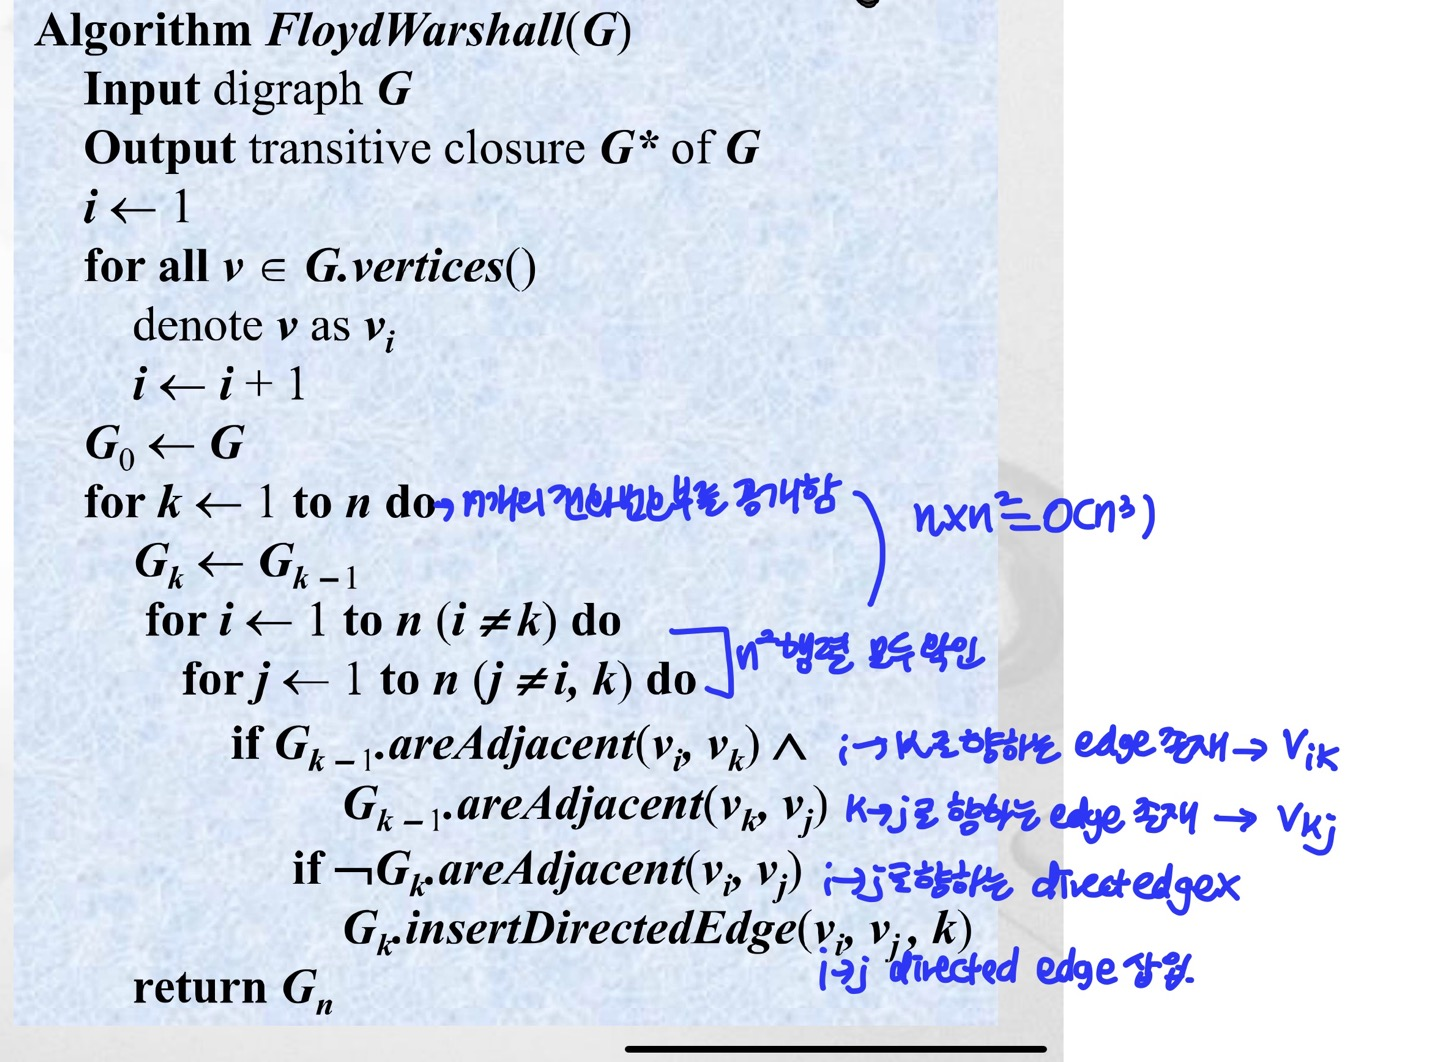 Algorithm FloydWarshall(G)
Input digraph G
Output transitive closure G* of G
i ← 1
for all v ∈ G.vertices()
denote v as vᵢ
i ← i + 1
G₀ ← G
for k ← 1 to n do → n개의 공개함
n×n² = O(n³)
Gₖ ← Gₖ₋₁
for i ← 1 to n (i ≠ k) do
n²행렬 모두 확인
for j ← 1 to n (j ≠ i, k) do
if Gₖ₋₁.areAdjacent(vᵢ, vₖ) ∧ i→K로 향하는 edge 존재 → Vik
Gₖ₋₁.areAdjacent(vₖ, vⱼ) K→j로 향하는 edge 존재 → Vkj
if ¬Gₖ.areAdjacent(vᵢ, vⱼ) i→j로 향하는 directedgex
Gₖ.insertDirectedEdge(vᵢ, vⱼ, k)
i→j directed edge 삽입.
return Gₙ